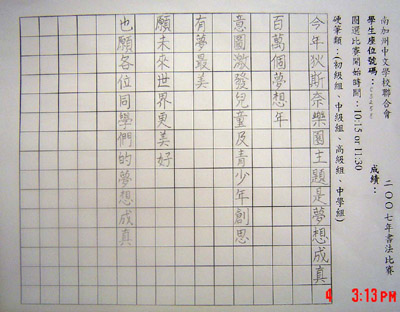 南加州中文學校聯合會
二○○七年書法比賽
學生座位號碼：
成績：
團選比賽開始時間：10:15 or 11:30
硬筆類：(初級組、中級組、高級組、中學組)
今年狄斯奈樂園主題是夢想成真
百萬個夢想年
意圖激發兒童及青少年創思
有夢最美
願未來世界更美好
也願各位同學們的夢想成真
3:13 PM